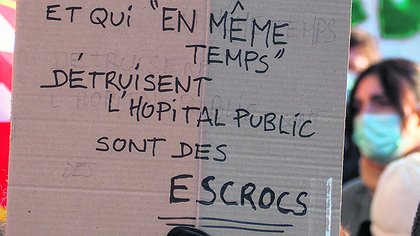 ET QUI "EN MÊME
TEMPS"
DÉTRUISENT
L'HOPITAL PUBLIC
SONT DES
ESCROCS